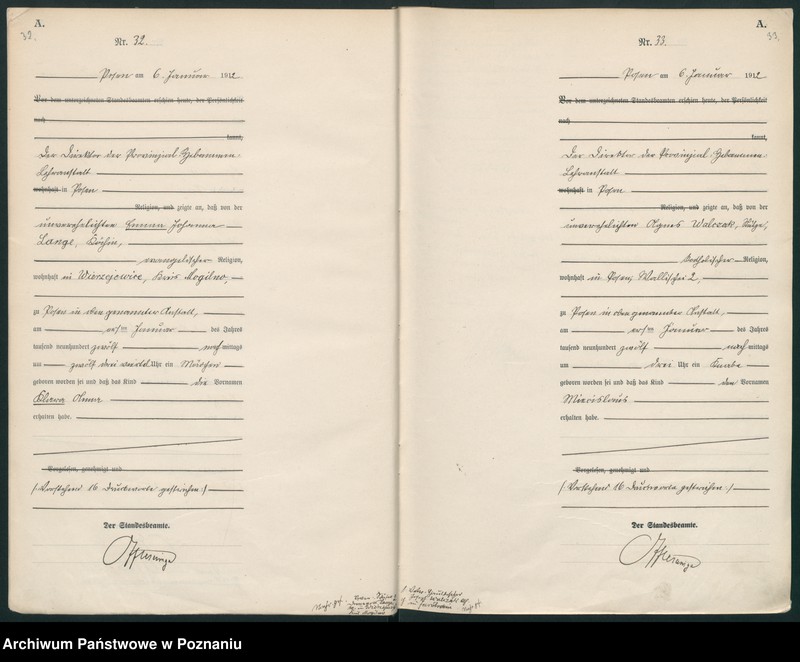 A.
32.
Nr. 32.
Posen am 6. Januar 1912
Vor dem unterzeichneten Standesbeamten erschien heute, der Persönlichkeit
nach
kannt,
Der Direktor der Provinzial-Hebammen-
Lehranstalt
wohnhaft in Posen
Religion, und zeigte an, daß von der
unverehelichten Emma Johanna
Lange, Köchin,
evangelischer Religion,
wohnhaft in Wierzejewice, Kreis Mogilno,
zu Posen in oben genannter Anstalt,
am ersten Januar des Jahres
tausend neunhundert zwölf nachmittags
um zwölf drei viertel Uhr ein Mädchen
geboren worden sei und daß das Kind die Vornamen
Klara Anna
erhalten habe.
Vorgelesen, genehmigt und
/: Vorstehend 16 Druckworte gestrichen :/
Der Standesbeamte.
A.
33.
Nr. 33.
Posen am 6. Januar 1912
Vor dem unterzeichneten Standesbeamten erschien heute, der Persönlichkeit
nach
kannt,
Der Direktor der Provinzial-Hebammen-
Lehranstalt
wohnhaft in Posen
Religion, und zeigte an, daß von der
unverehelichten Agnes Walczak,
katholischer Religion,
wohnhaft in Posen, Wallischei 2,
zu Posen in oben genannter Anstalt,
am ersten Januar des Jahres
tausend neunhundert zwölf nachmittags
um drei Uhr ein Knabe
geboren worden sei und daß das Kind den Vornamen
Miecislaus
erhalten habe.
Vorgelesen, genehmigt und
/: Vorstehend 16 Druckworte gestrichen :/
Der Standesbeamte.
Archiwum Państwowe w Poznaniu